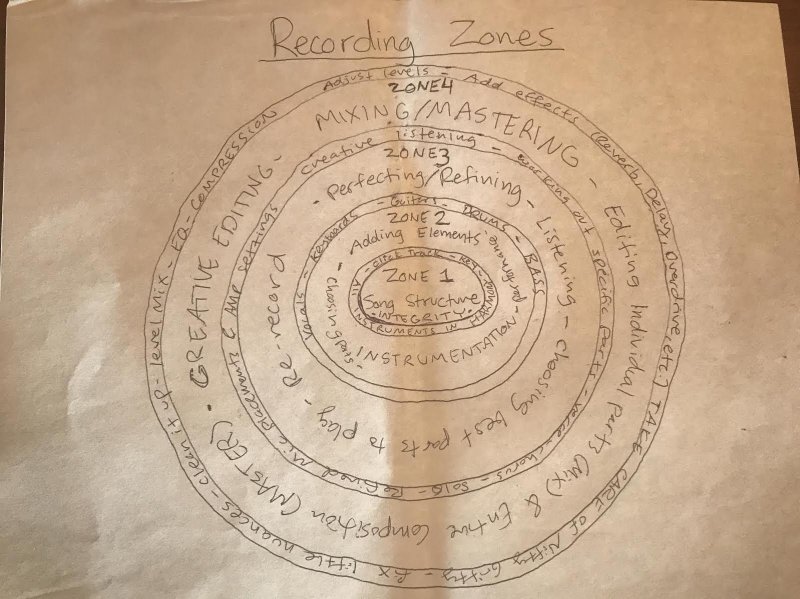 Recording Zones
Adjust levels - Add effects (Reverb, Delay, Overdrive, etc.) TAKE CARE OF Nitty Gritty - fix little nuances - clean it up - level Mix - EQ - COMPRESSION
ZONE4
MIXING/MASTERING - Editing Individual Parts (Mix) & Entire Composition (MASTER) - GREATIVE EDITING -
creative listening - working out specific parts - verse - chorus - solo - Refined Mic placements & AMP settings
ZONE3
- Perfecting/Refining - Listening - choosing best parts to play - Re-record
Keyboards - Guitars - DRUMS - BASS
Vocals -
ZONE 2
Adding Elements - performance - INSTRUMENTATION - choosing parts -
- Click Track - Key -
All INSTRUMENTS IN HARMONY
ZONE 1
Song Structure
- INTEGRITY -